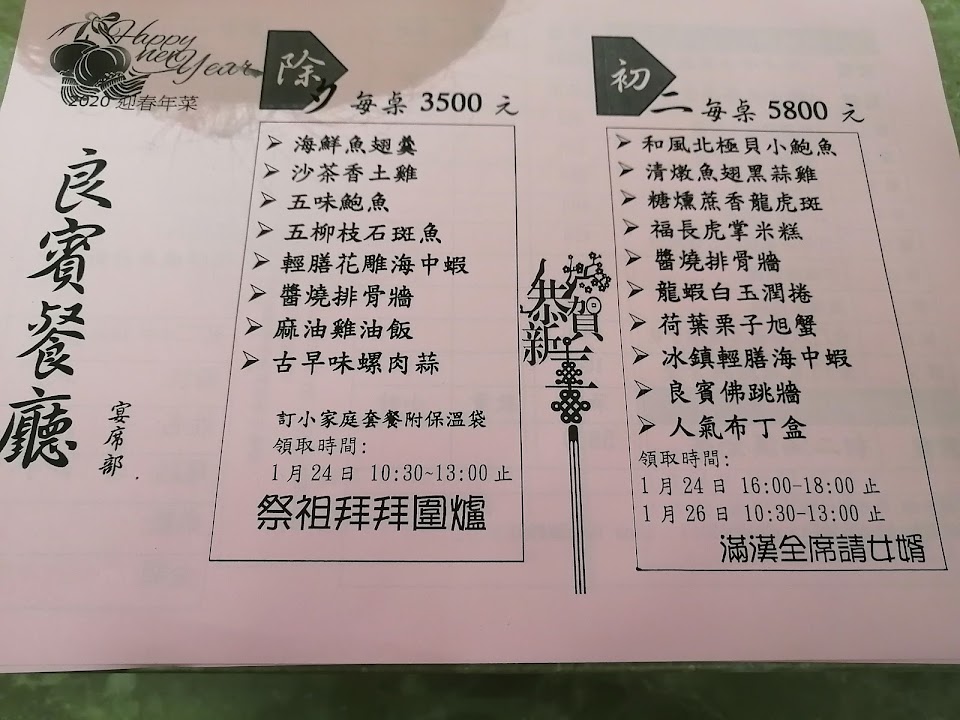 Happy
new
Year
2020 迎春年菜
良賓餐廳
宴席部
除夕 每桌 3500 元
海鮮魚翅羹
沙茶香土雞
五味鮑魚
五柳枝石斑魚
輕膳花雕海中蝦
醬燒排骨牆
麻油雞油飯
古早味螺肉蒜
訂小家庭套餐附保溫袋
領取時間:
1月24日 10:30~13:00 止
祭祖拜拜圍爐
恭賀
新
初二 每桌 5800 元
和風北極貝小鮑魚
清燉魚翅黑蒜雞
糖燻蔗香龍虎斑
福長虎掌米糕
醬燒排骨牆
龍蝦白玉潤捲
荷葉栗子旭蟹
冰鎮輕膳海中蝦
良賓佛跳牆
人氣布丁盒
領取時間:
1月24日 16:00-18:00 止
1月26日 10:30-13:00 止
滿漢全席請女婿